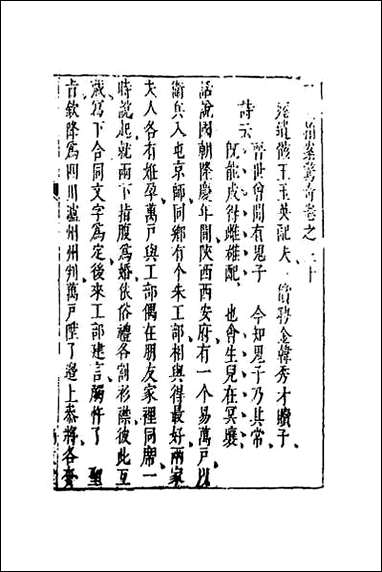 拍案驚奇卷之三十
瘞遺骸王玉英配夫 償聘金韓秀才贖子
詩云
晉世曾聞有鬼子 今知鬼子乃其常
既能成得雌雄配 也會生兒在冥壤
話說國朝隆慶年間陝西西安府有一个易萬戶以
衛兵入屯京師同鄉有个朱工部相與得最好兩家
夫人各有妊孕萬戶與工部偶在朋友家裡同席一
時說起就兩下指腹為婚依俗禮各割衫襟彼此互
藏寫下合同文字為定後來工部建言觸忤了 聖
旨欽降為四川瀘州州判萬戶陞了邊上參將各奔